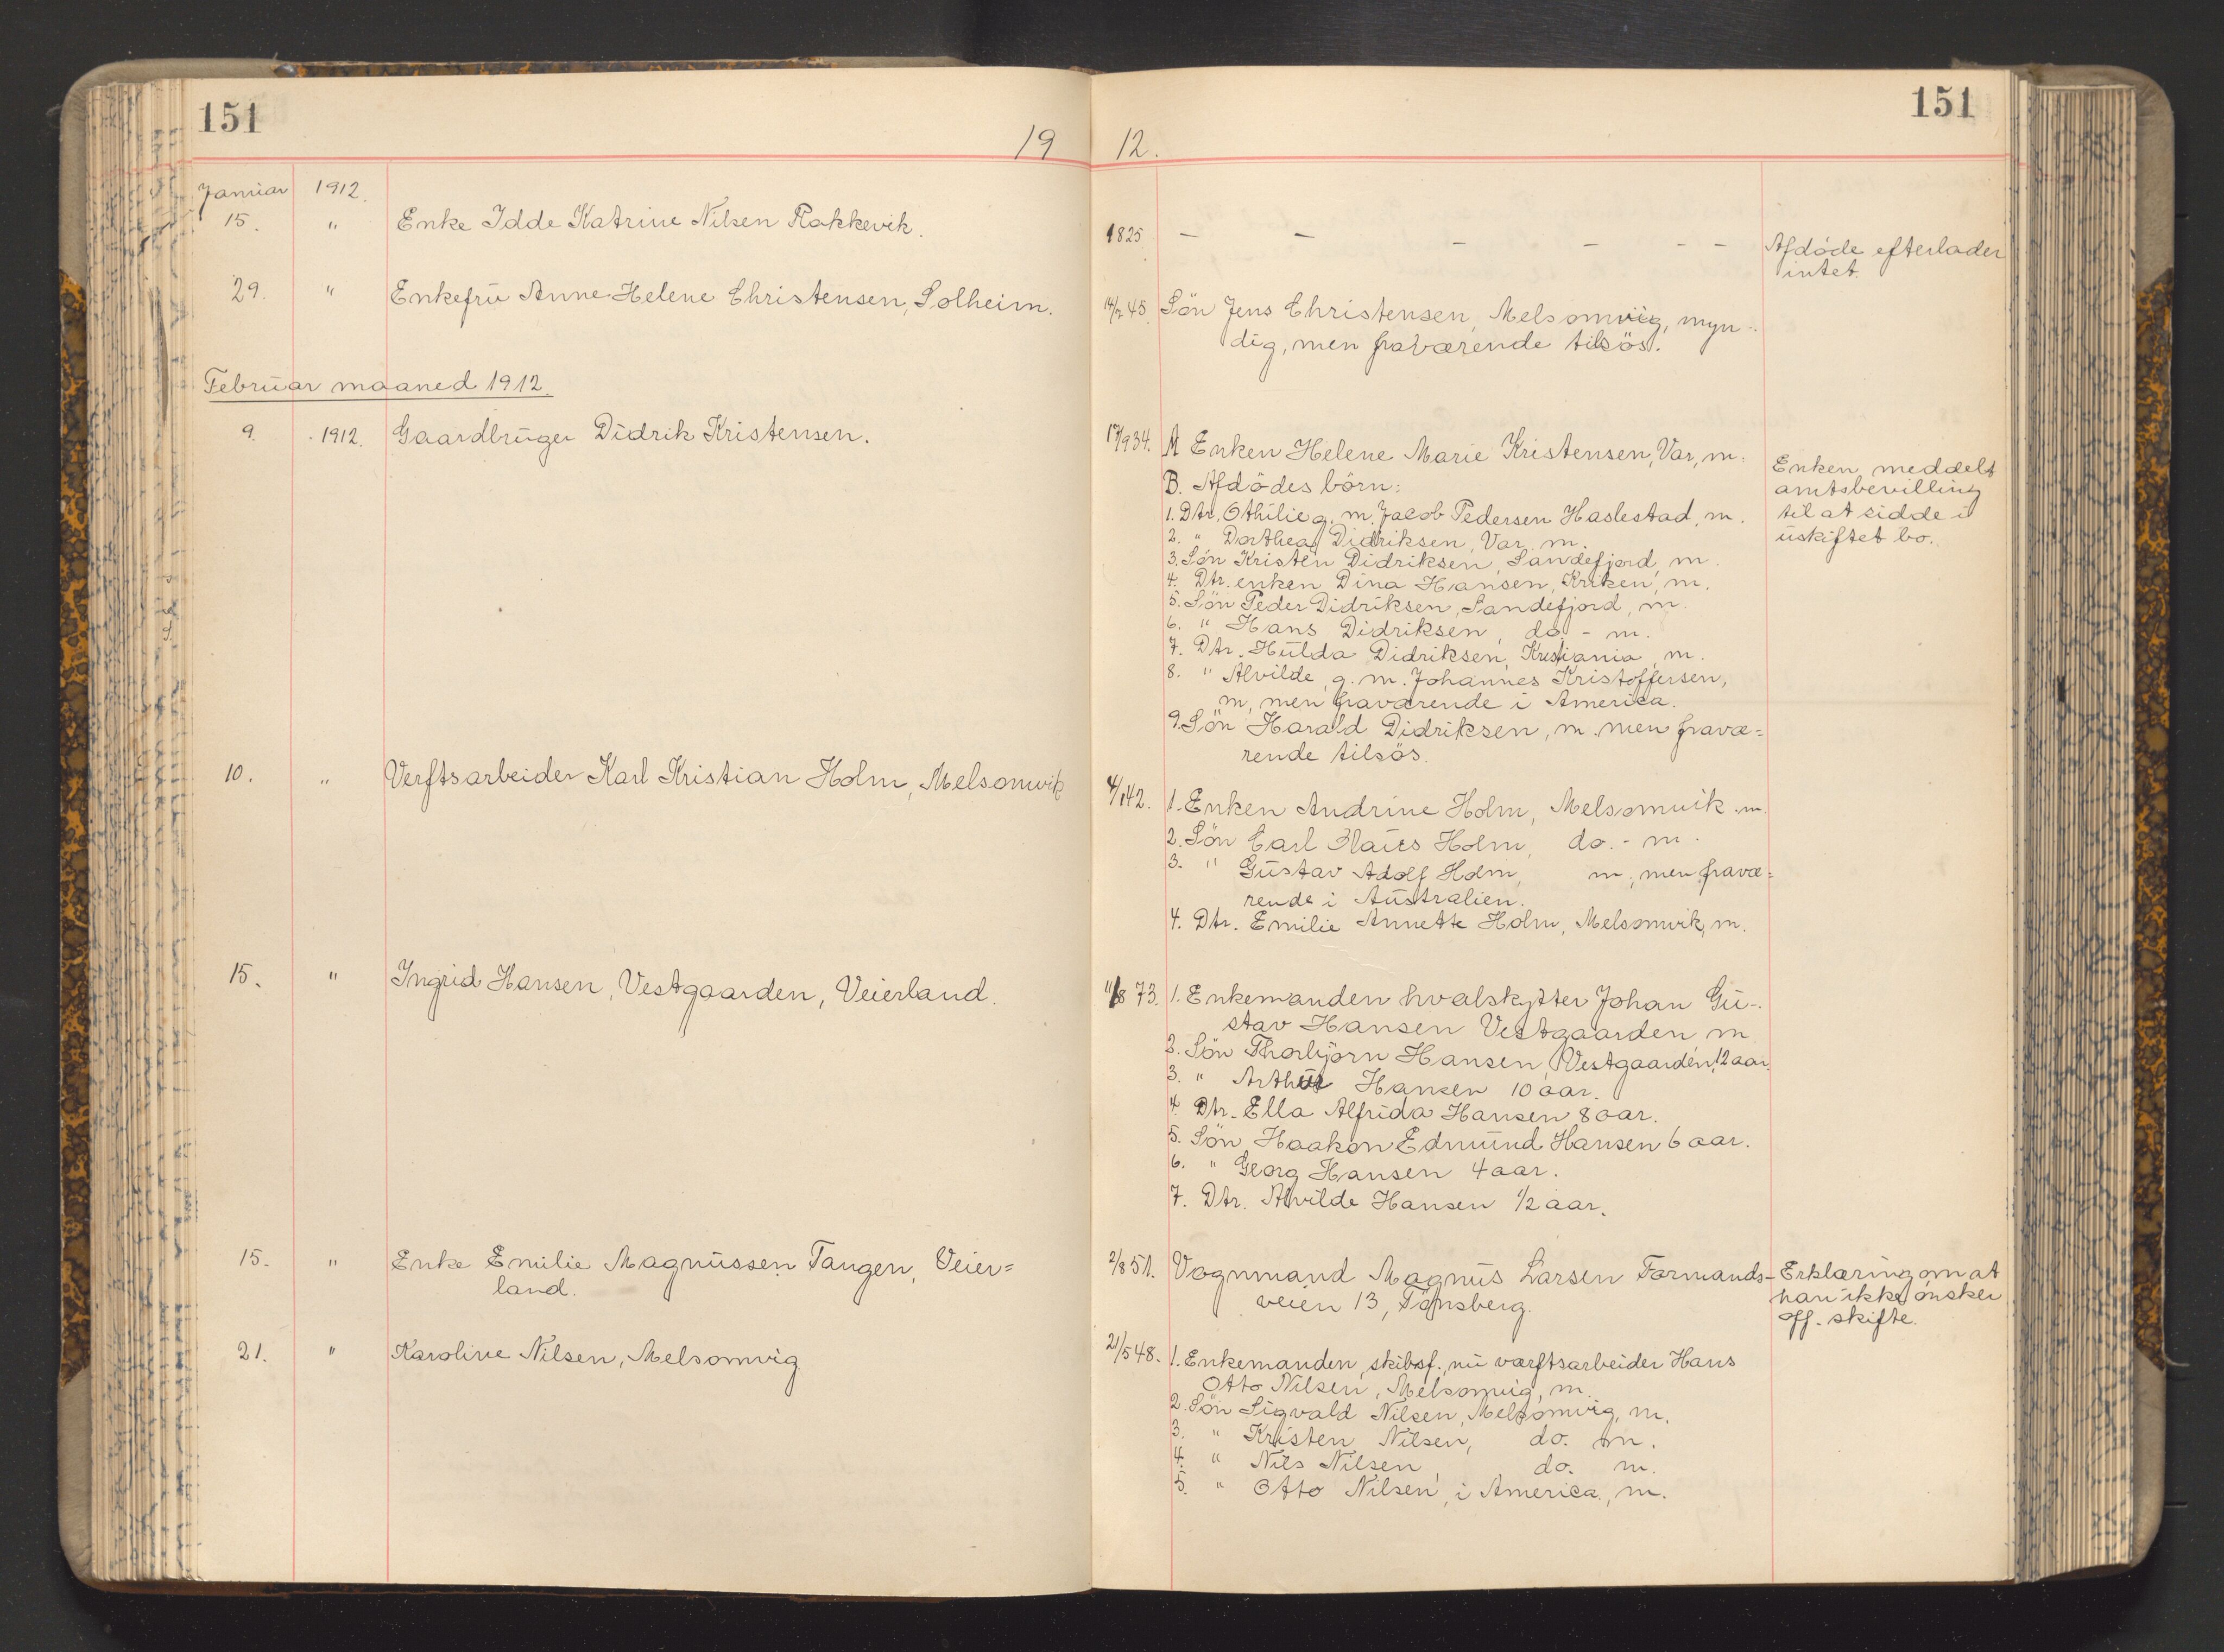 151
151
19 12.
Januar 1912.
15. " Enke Idde Katrine Nilsen Rakkevik.
1825 — — — — - -
Afdöde efterlader
intet.
29. " Enkefru Anne Helene Christensen, Solheim.
14/7 45. Sön Jens Christensen, Melsomvig, myn-
dig, men fraværende tilsös.
Februar maaned 1912.
9. 1912. Gaardbruger Didrik Kristensen.
17/9 34. A Enken Helene Marie Kristensen, Var, m.
B. Afdödes börn:
1. Dtr. Othilie g. m. Jacob Pedersen Haslestad, m.
2. " Dorthea Didriksen, Var m.
3. Sön Kristen Didriksen, Sandefjord, m.
4. Dtr. enken Dina Hansen, Kriken, m.
5. Sön Peder Didriksen, Sandefjord, m.
6. " Hans Didriksen, do - m.
7. Dtr. Hulda Didriksen, Kristiania, m.
8. " Alvilde, g. m. Johannes Kristoffersen,
m, men fraværende i America.
9. Sön Harald Didriksen, m. men fravæ=
rende tilsös.
Enken meddelt
amtsbevilling
til at sidde i
uskiftet bo.
10. " Verftsarbeider Karl Kristian Holm, Melsomvik
4/1 42. 1. Enken Andrine Holm, Melsomvik m.
2. Sön Carl Claues Holm, do. - m.
3. " Gustav Adolf Holm, m, men fravæ=
rende i Australien.
4. Dtr. Emilie Annette Holm, Melsomvik, m.
15. " Ingrid Hansen, Vestgaarden, Veierland.
11/8 73. 1. Enkemanden hvalskytter Johan Gu-
stav Hansen Vestgaarden m
2. Sön Thorbjörn Hansen, Vestgaarden, 12 aar.
3. " Arthur Hansen 10 aar.
4. Dtr. Ella Alfrida Hansen 8 aar.
5. Sön Haakon Edmund Hansen 6 aar.
6. " Georg Hansen 4 aar.
7. Dtr. Alvilde Hansen 1/2 aar.
15. " Enke Emilie Magnussen Tangen, Veier=
land.
2/8 51. Vognmand Magnus Larsen Formands-
veien 13, Tönsberg.
Erklæring om at
han ikke önsker
off. skifte.
21. " Karoline Nilsen, Melsomvig
21/5 48. 1. Enkemanden, skibsf., nu værftsarbeider Hans
Otto Nilsen, Melsomvig, m.
2. Sön Sigvald Nilsen, Melsomvig, m.
3. " Kristen Nilsen, do. m.
4. " Nils Nilsen, do. m.
5. " Otto Nilsen, i America, m.